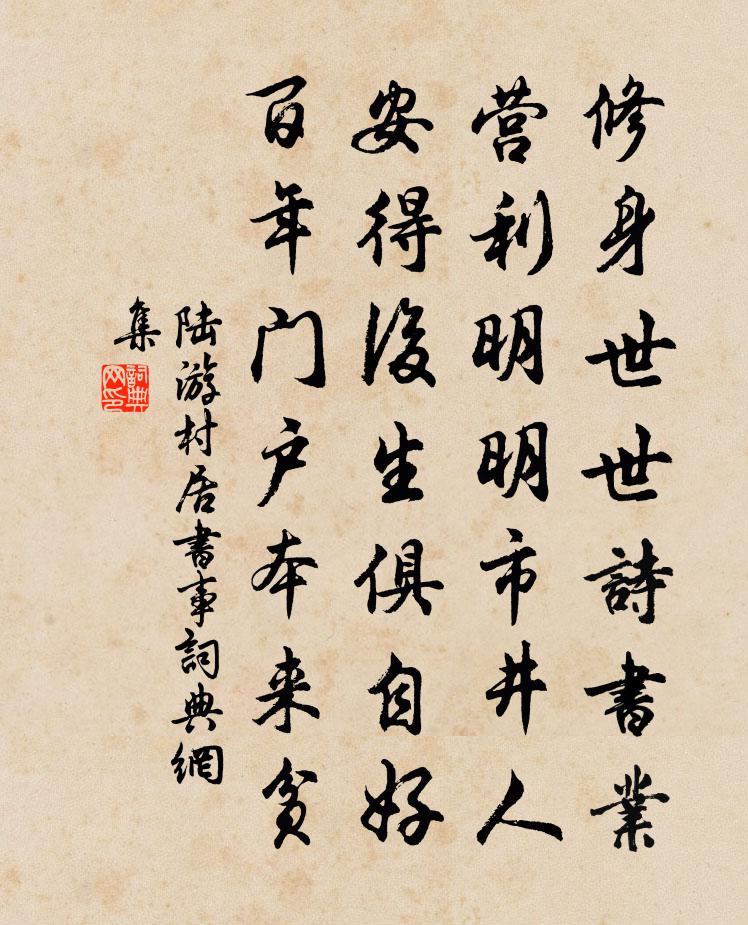 修身世世詩書業
营利明明市井人
安得後生俱自好
百年門户本来貧
陆游村居書事詞典網
集
詞典
网印